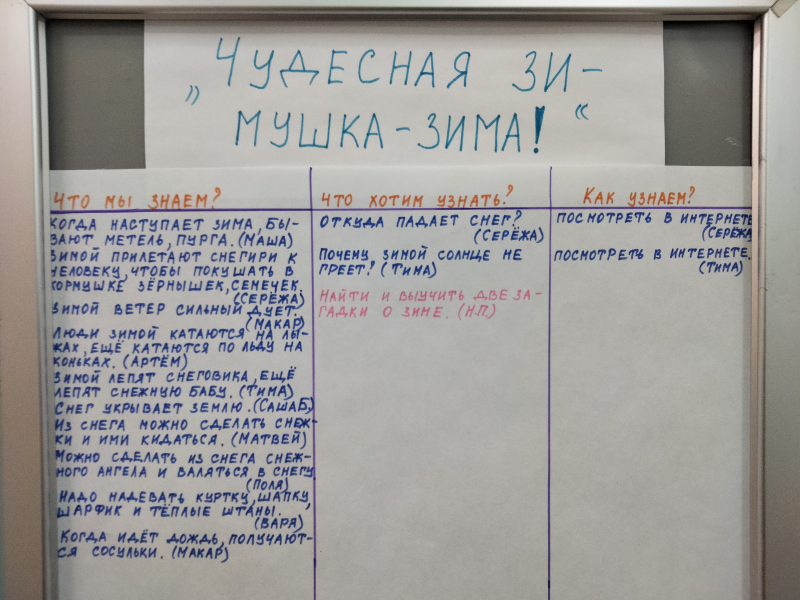 „Чудесная зи-
мушка-зима!“
Что мы знаем?
Когда наступает зима, бы-
вают метель, пурга. (Маша)
Зимой прилетают снегири к
человеку, чтобы покушать в
кормушке зёрнышек, семечек.
(Серёжа)
Зимой ветер сильный дует.
(Макар)
Люди зимой катаются на лы-
жах, ещё катаются по льду на
коньках. (Артём)
Зимой лепят снеговика, ещё
лепят снежную бабу. (Тима)
Снег укрывает землю. (Саша Б)
Из снега можно сделать снеж-
ки и ими кидаться. (Матвей)
Можно сделать из снега снеж-
ного ангела и валяться в снегу
(Поля)
Надо надевать куртку, шапку,
шарфик и тёплые штаны.
(Варя)
Когда идёт дождь, получают-
ся сосульки. (Макар)
Что хотим узнать?
Откуда падает снег?
(Серёжа)
Почему зимой солнце не
греет? (Тима)
Найти и выучить две за-
гадки о зиме. (Н.П.)
Как узнаем?
Посмотреть в интернете
(Серёжа
Посмотреть в интернете.
(Тима)